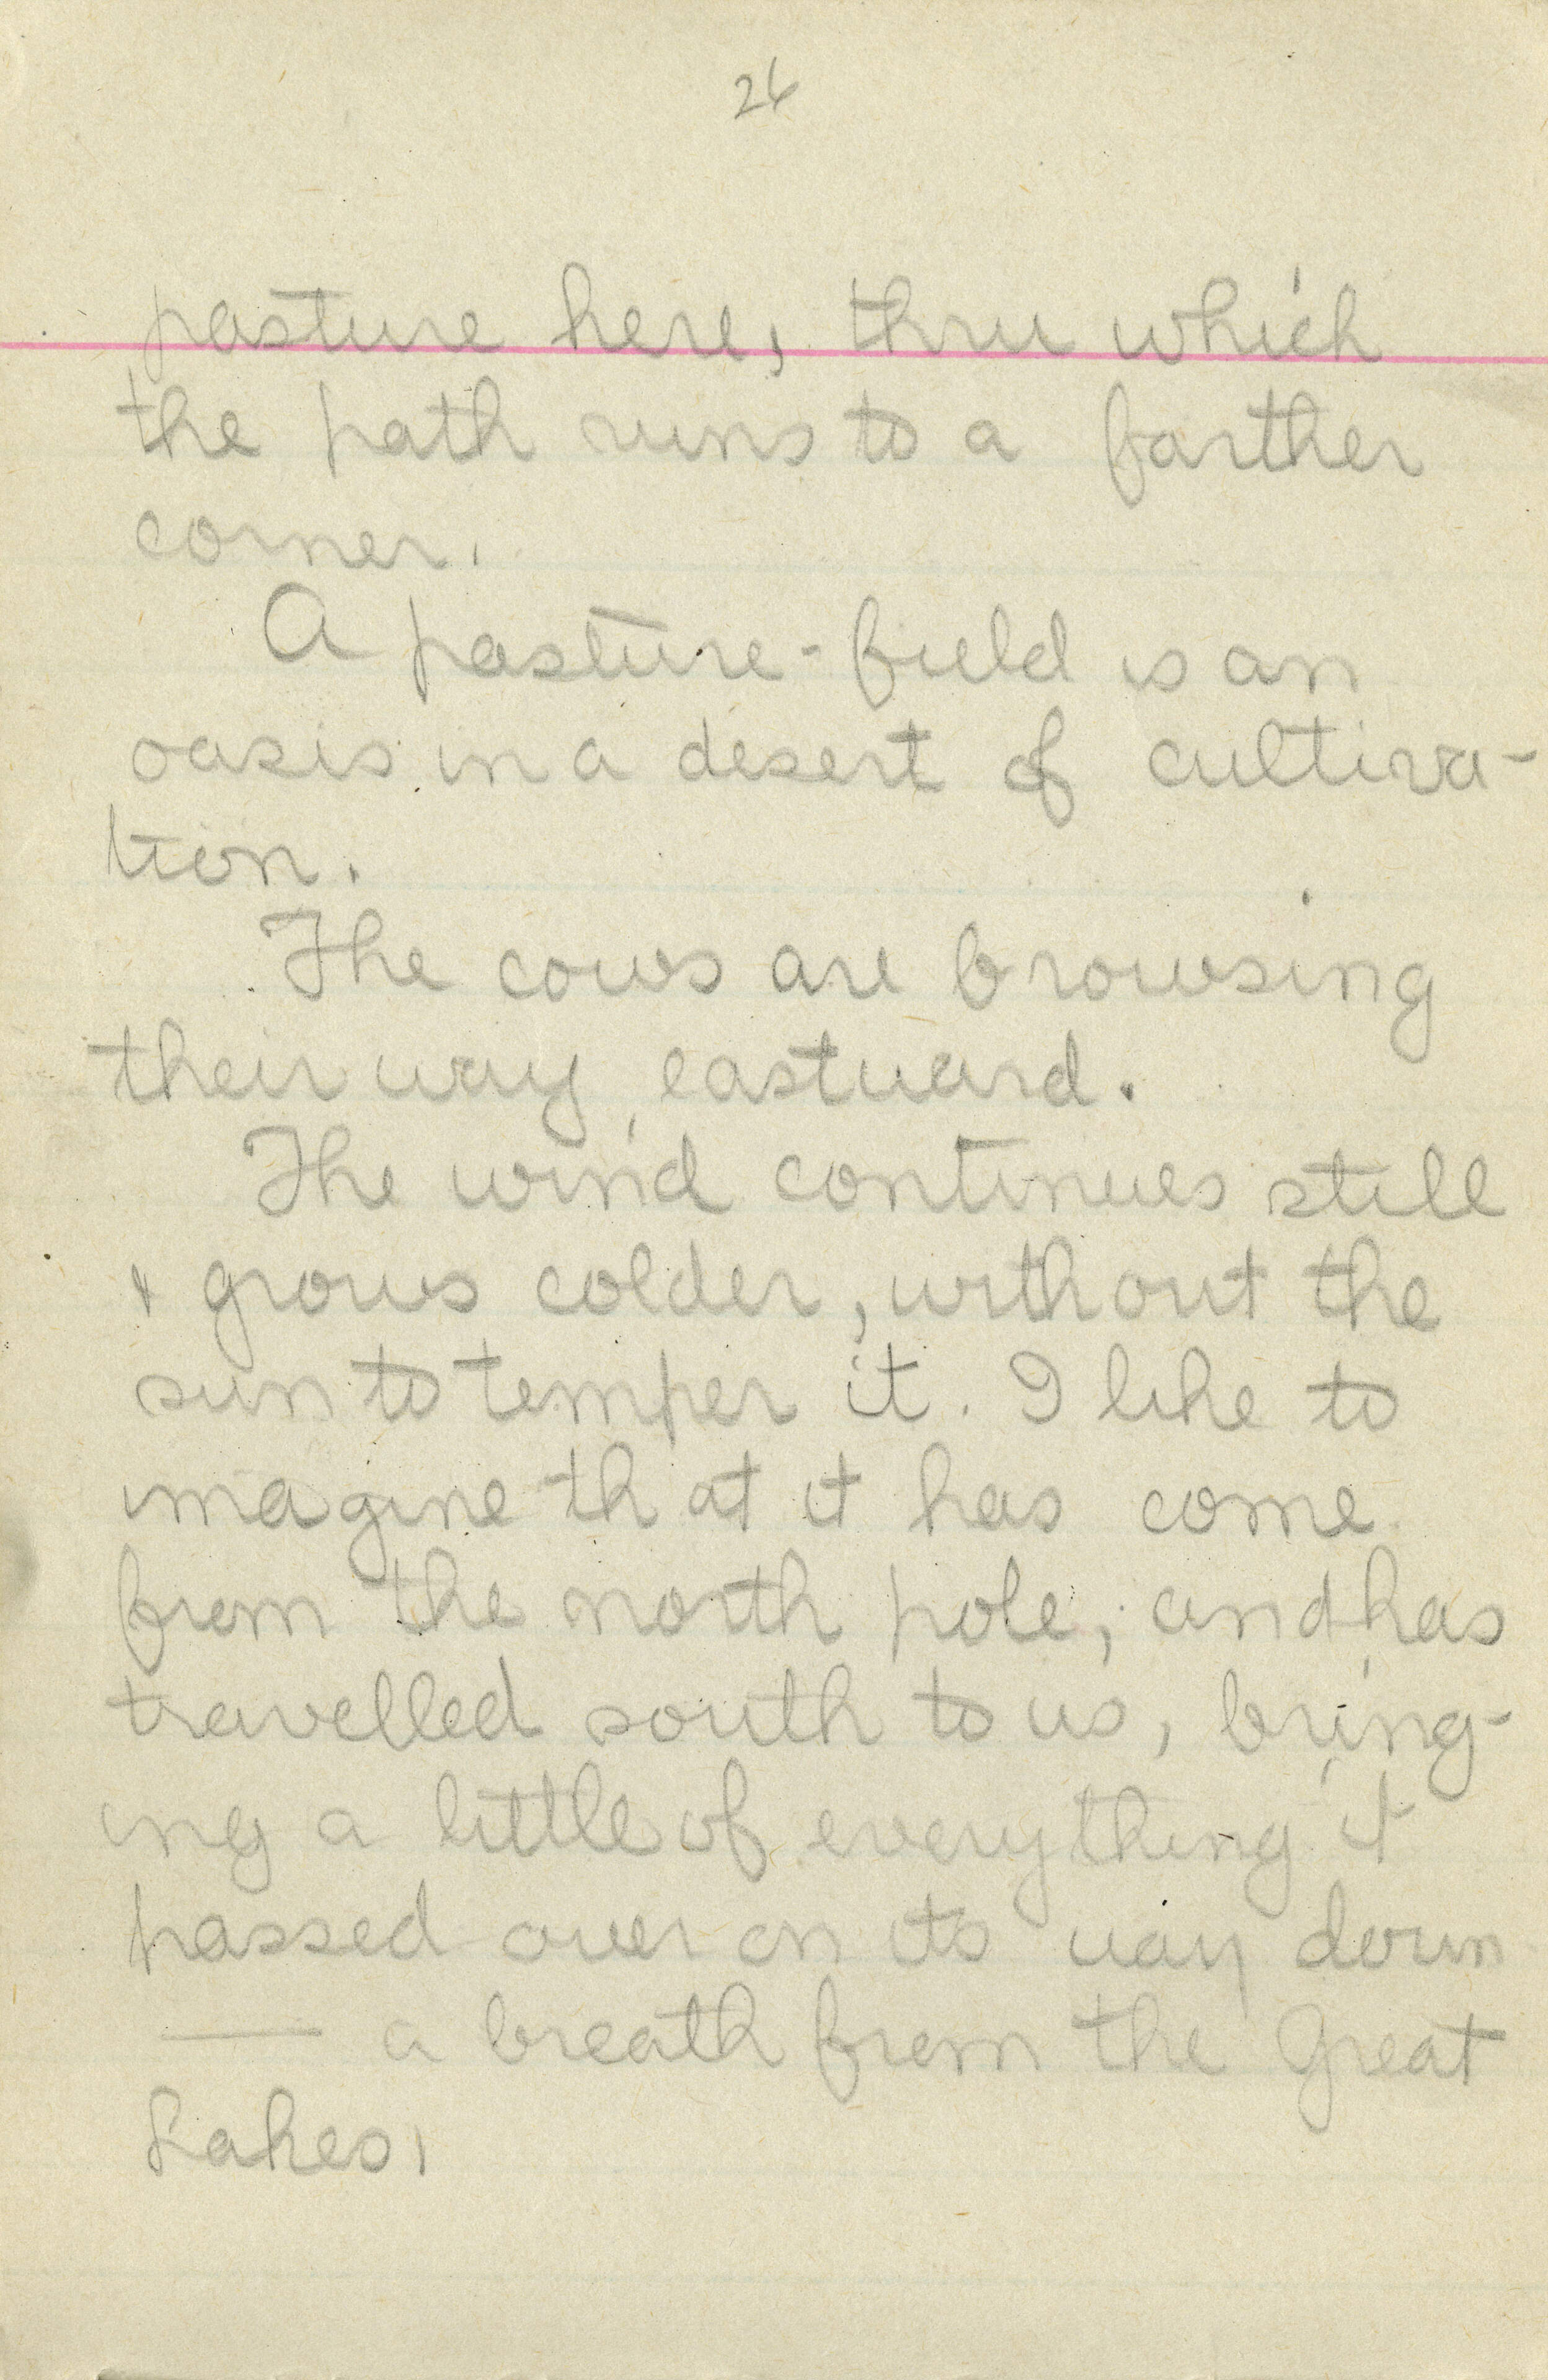 26
pasture here, thru which
the path runs to a farther
corner.
A pasture-field is an
oasis in a desert of cultiva-
tion.
The cows are browsing
their way eastward.
The wind continues still
& grows colder, without the
sun to temper it. I like to
imagine that it has come
from the north pole, and has
travelled south to us, bring-
ing a little of everything it
passed over on its way down
— a breath from the Great
Lakes,